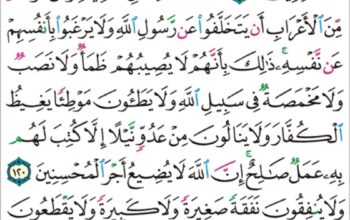 مِّنَ ٱلْأَعْرَابِ أَن يَتَخَلَّفُوا۟ عَن رَّسُولِ ٱللَّهِ وَلَا يَرْغَبُوا۟ بِأَنفُسِهِمْ
عَن نَّفْسِهِۦ ۚ ذَٰلِكَ بِأَنَّهُمْ لَا يُصِيبُهُمْ ظَمَأٌ وَلَا نَصَبٌ
وَلَا مَخْمَصَةٌ فِى سَبِيلِ ٱللَّهِ وَلَا يَطَـُٔونَ مَوْطِئًا يَغِيظُ
ٱلْكُفَّارَ وَلَا يَنَالُونَ مِنْ عَدُوٍّ نَّيْلًا إِلَّا كُتِبَ لَهُم
بِهِۦ عَمَلٌ صَـٰلِحٌ ۚ إِنَّ ٱللَّهَ لَا يُضِيعُ أَجْرَ ٱلْمُحْسِنِينَ ١٢٠
وَلَا يُنفِقُونَ نَفَقَةً صَغِيرَةً وَلَا كَبِيرَةً وَلَا يَقْطَعُونَ